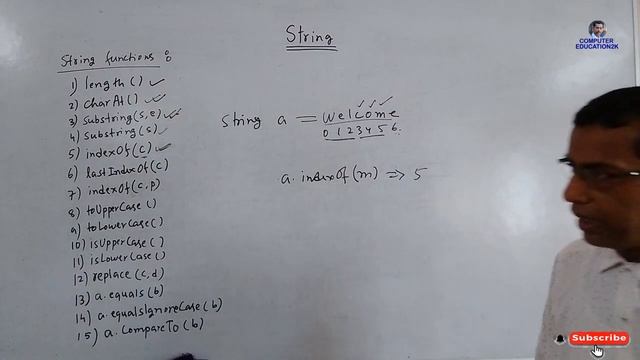 String
COMPUTER
EDUCATION2K
String functions :
1) length ()
2) charAt()
3) substring(s,e)
4) substring(s)
5) indexOf(c)
6) lastIndexOf(c)
7) indexOf(c,p)
8) toUpperCase()
9) toLowerCase()
10) isUpperCase()
11) isLowerCase()
12) replace (c,d)
13) a.equals(b)
14) a.equalsIgnoreCase(b)
15) a.CompareTo(b)
String a = Welcome
0 1 2 3 4 5 6
a.indexOf(m) => 5
Subscribe